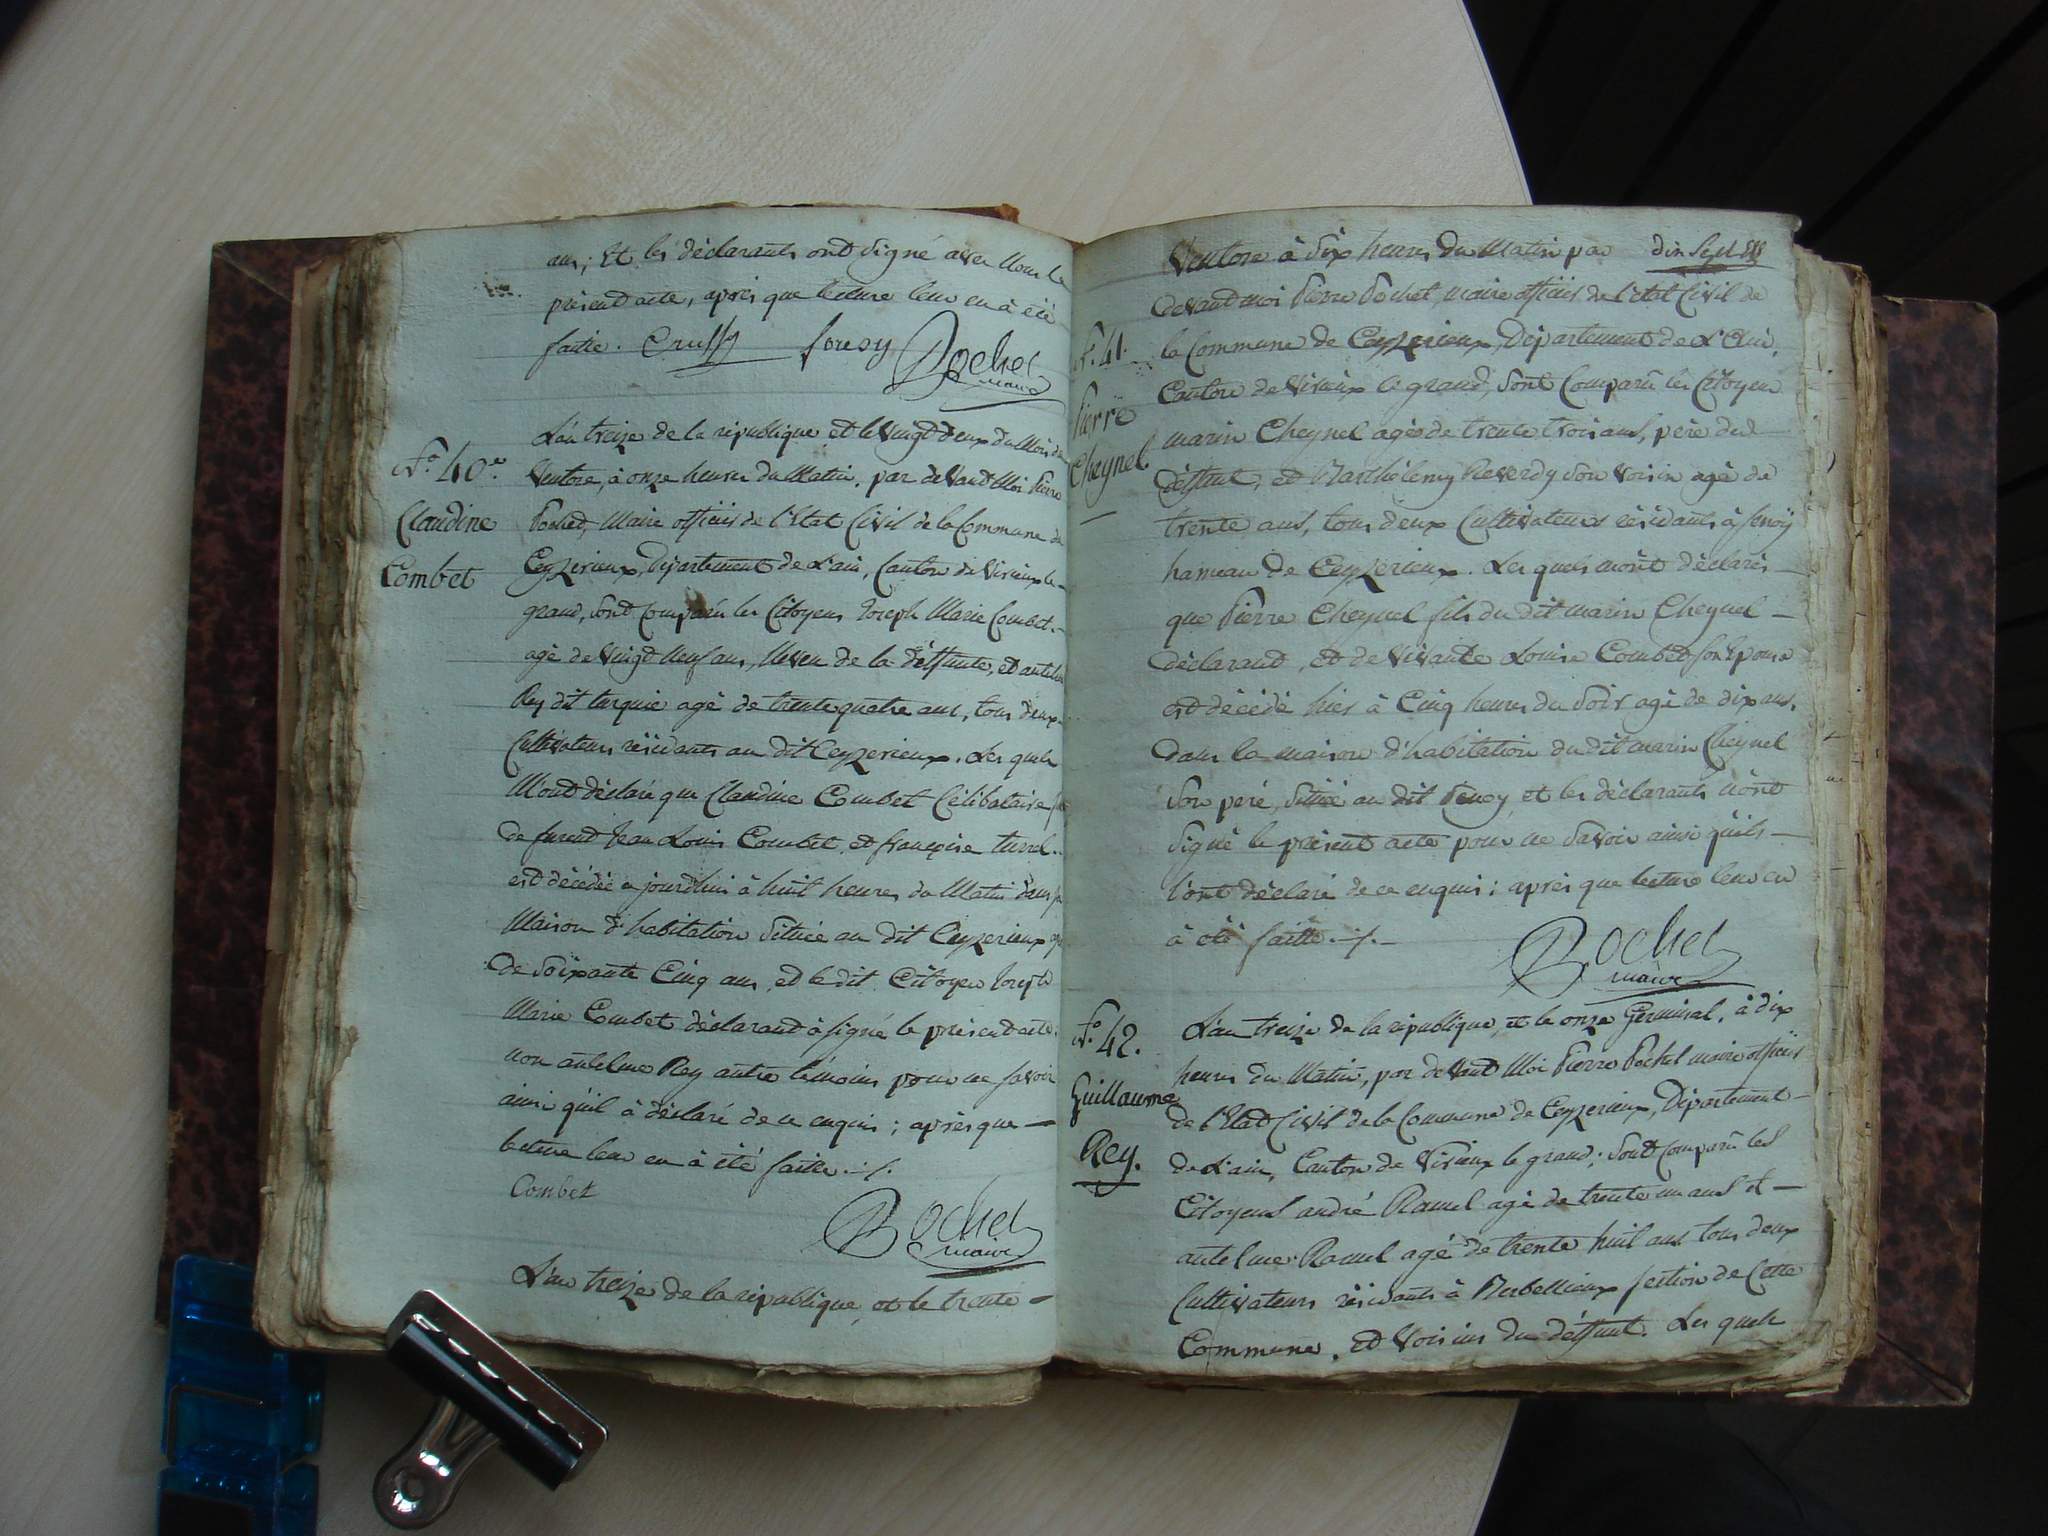 ans; Et les déclarants ont signé avec nous le
présent acte, après que lecture leur en à été
faitte.
Pochet
maire
N.o 40.e
Claudine
Combet
L'an treize de la république et le vingt deux du Mois de
Ventose, à onze heures du Matin, par devant Moi Pierre
Pochet, Maire officier de l'Etat Civil de la Commune de
Ceyzerieux, Département de L'ain, Canton de Virieux le
grand, sont comparûs les Citoyens Joseph Marie Combet.
agé de vingt neuf ans, Neveu de la déffunte, et antelme
Rey dit turquie agé de trente quatre ans, tous deux
Cultivateurs résidants au dit Ceyzerieux. Les quels
M'ont déclaré que Claudine Combet Célibataire
de furent Jean Louis Combet et françoise turrel
est décédée aujourdhui à huit heures du Matin dans sa
Maison d'habitation Sittuée au dit Ceyzerieux
de Soixante Cinq ans, et le dit Citoyen Joseph
Marie Combet déclarant à signé le présent acte.
non antelme Rey autre témoins pour ne savoir
ainsi qu'il à déclaré de ce enquis; après que —
lecture leur en à été faitte ./.
Combet
Pochet
maire
L'an treize de la république, et le trente —
Ventose à Dix heures du Matin par
devant moi Pierre Pochet, maire officier de l'état Civil de
la Commune de Ceyzerieux, Département de L'Ain,
Canton de Virieux le grand, sont Comparû les Citoyens
N.o 41.
Pierre
Cheynel
marin Cheynel agés de trente trois ans, pere du
déffunt, et Barthélemy Reverdy son voisin agé de
trente ans, tous deux Cultivateurs résidants à
hameau de Ceyzerieux. Les quels m'ont déclarés
que Pierre Cheynel fils du dit marin Cheynel —
déclarant, et de vivante Louise Combet son Epouse
est décédé hier à Cinq heures du Soir agé de dix ans,
dans la maison d'habitation du dit marin Cheynel
son peré, Sittuée au dit et les déclarants n'ont
signé le présent acte pour ne savoir ainsi quils —
l'ont déclaré de ce enquis; après que lecture leur en
à été faitte ./.
Pochet
maire
N.o 42.
Guillaume
Rey.
L'an treize de la république, et le onze Germinal, à dix
heures du Matin, par devant Moi Pierre Pochet maire officier
de l'Etat Civil de la Commune de Ceyzerieux, Département —
de L'ain, Canton de Virieux le grand; sont comparû les
Citoyens andré Ramel agé de trente un ans et —
antelme Ramel agé de trente huit ans tous deux
Cultivateurs résidants à section de Cette
Commune, et Voisins du déffunt. Les quels